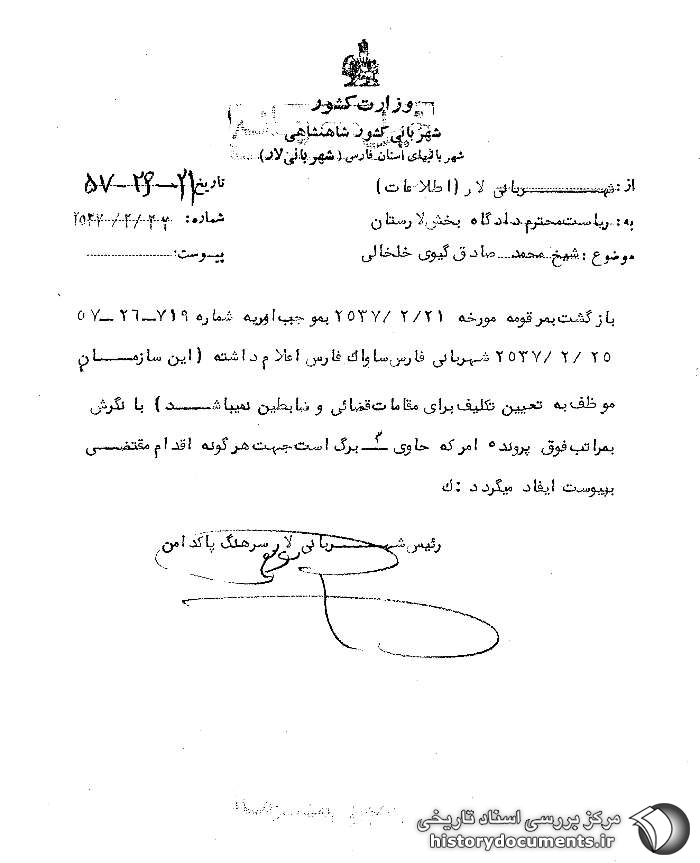 وزارت کشور
شهربانی کشور شاهنشاهی
شهربانیهای استان فارس (شهربانی لار)
از: شهربانی لار (اطلاعات)
تاریخ ۲۱-۲۶-۵۷
به: ریاست محترم دادگاه بخش لارستان
شماره: ۲۵۳۷/۲/
موضوع: شیخ محمد صادق گیوی خلخالی
پیوست:
بازگشت بمرقومه مورخه ۲۵۳۷/۲/۲۱ بموجب اوریه شماره ۷۱۹-۲۶-۵۷
۲۵۳۷/۲/۲۵ شهربانی فارس ساواک فارس اعلام داشته (این سازمان
موظف به تعیین تکلیف برای مقامات قضائی و ضابطین نمیباشد) با نگرش
بمراتب فوق پرونده امر که حاوی برگ است جهت هرگونه اقدام مقتضی
بپیوست ایفاد میگردد :ك
رئیس شهربانی لار سرهنگ پاکدامن
مرکز بررسی اسناد تاریخی
historydocuments.ir